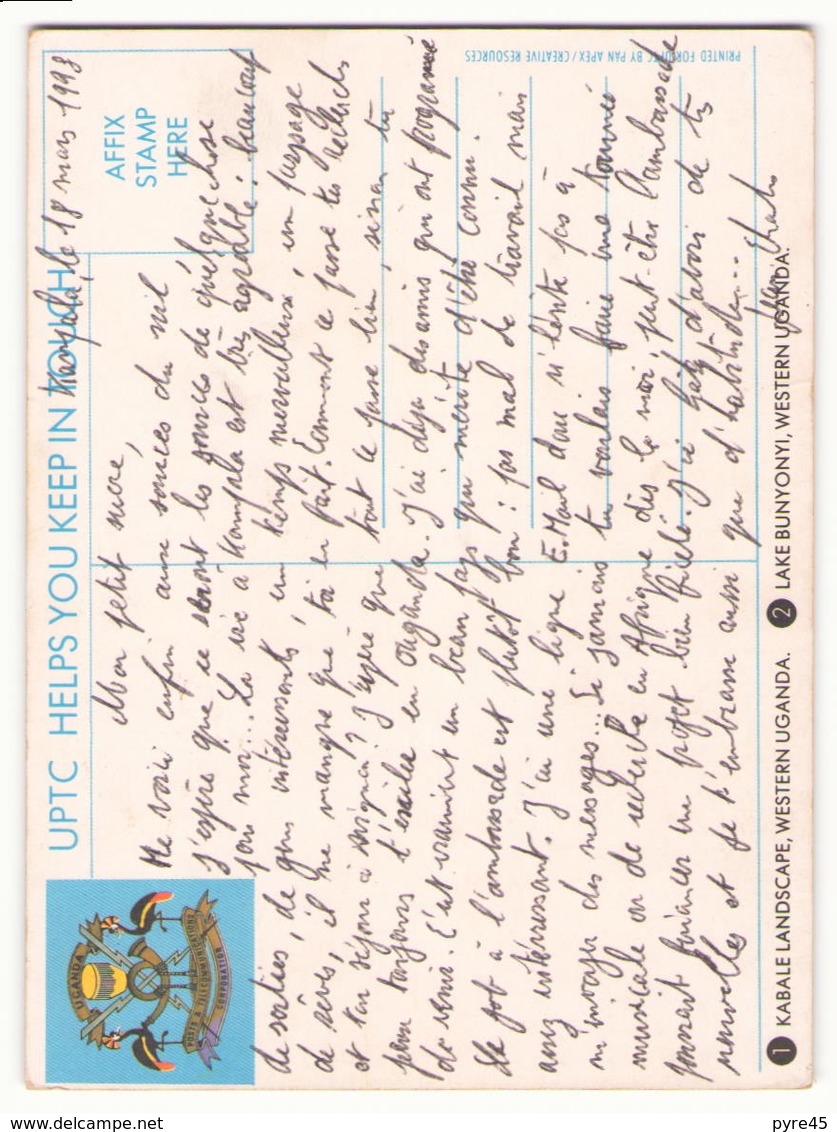 UPTC HELPS YOU KEEP IN TOUCH
AFFIX
STAMP
HERE
PRINTED FOR UPTC BY PAN APEX / CREATIVE RESOURCES
UGANDA
POSTS & TELECOMMUNICATIONS
CORPORATION
Kampala, le 18 mars 1998
Mon petit
Me voici enfin aux sources du nil
J'espère que ce seront les sources de quelque chose
pour moi... La vie à Kampala est très agréable : beaucoup
de sorties, de gens intéressants, un temps merveilleux, un paysage
de rêves, il ne manque que toi en fait. Comment se passe tes recherches
et ton séjour à Avignon ? J'espère que tout se passe bien, sinon tu
peux toujours t'exiler en Ouganda. J'ai déjà des amis qui ont programmé
de venir. C'est vraiment un beau pays qui mérite d'être connu.
Le job à l'ambassade est plutôt bon : pas mal de travail mais
assez intéressant. J'ai une ligne E.Mail donc n'hésite pas à
m'envoyer des messages... Si jamais tu voulais faire une tournée
musicale ou de recherche en Afrique dis le moi, peut-être l'ambassade
pourrait financer un projet bien ficelé. J'ai hâte d'avoir de tes
nouvelles et je t'embrasse aussi que d'habitude...
Jean
1 KABALE LANDSCAPE, WESTERN UGANDA. 2 LAKE BUNYONYI, WESTERN UGANDA.
www.delcampe.net
pyre45